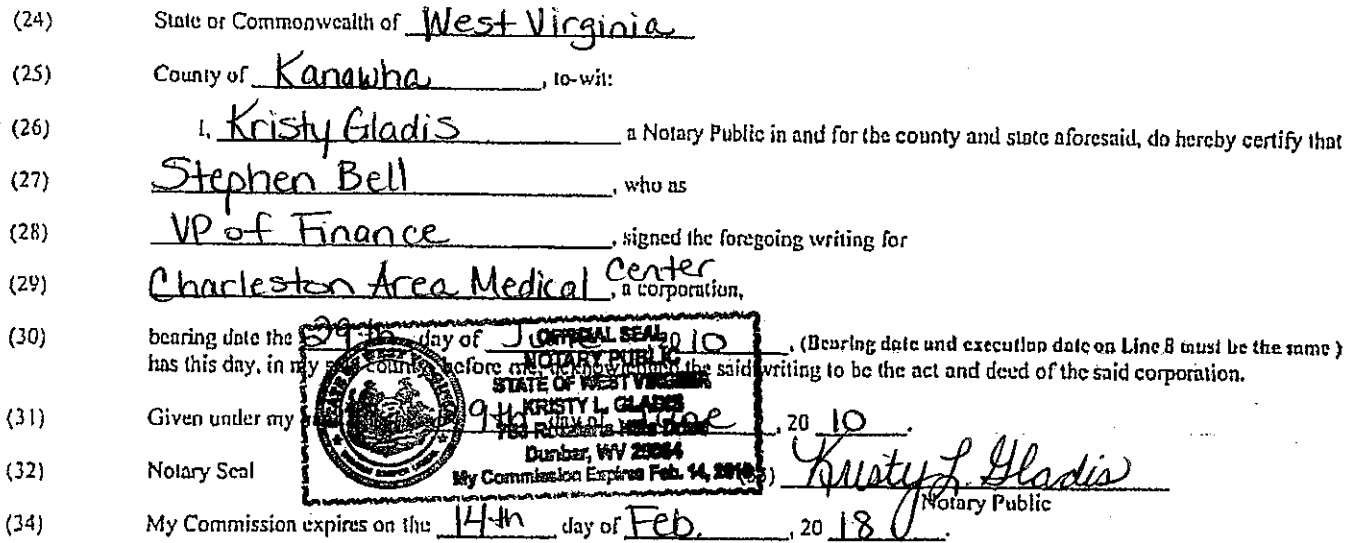 (24) State or Commonwealth of West Virginia
(25) County of Kanawha, to-wit:
(26) I, Kristy Gladis a Notary Public in and for the county and state aforesaid, do hereby certify that
(27) Stephen Bell, who as
(28) VP of Finance, signed the foregoing writing for
(29) Charleston Area Medical Center, a corporation,
(30) bearing date the 29th day of 2010, (Bearing date and execution date on Line 8 must be the same)
has this day, in my said county, before me, acknowledged the said writing to be the act and deed of the said corporation.
OFFICIAL SEAL
NOTARY PUBLIC
STATE OF WEST VIRGINIA
KRISTY L. GLADIS
Hills Drive
Dunbar, WV 25064
My Commission Expires Feb. 14, 2018
(31) Given under my 9th day of June, 20 10.
(32) Notary Seal (33) Kristy L. Gladis
Notary Public
(34) My Commission expires on the 14th day of Feb., 20 18.